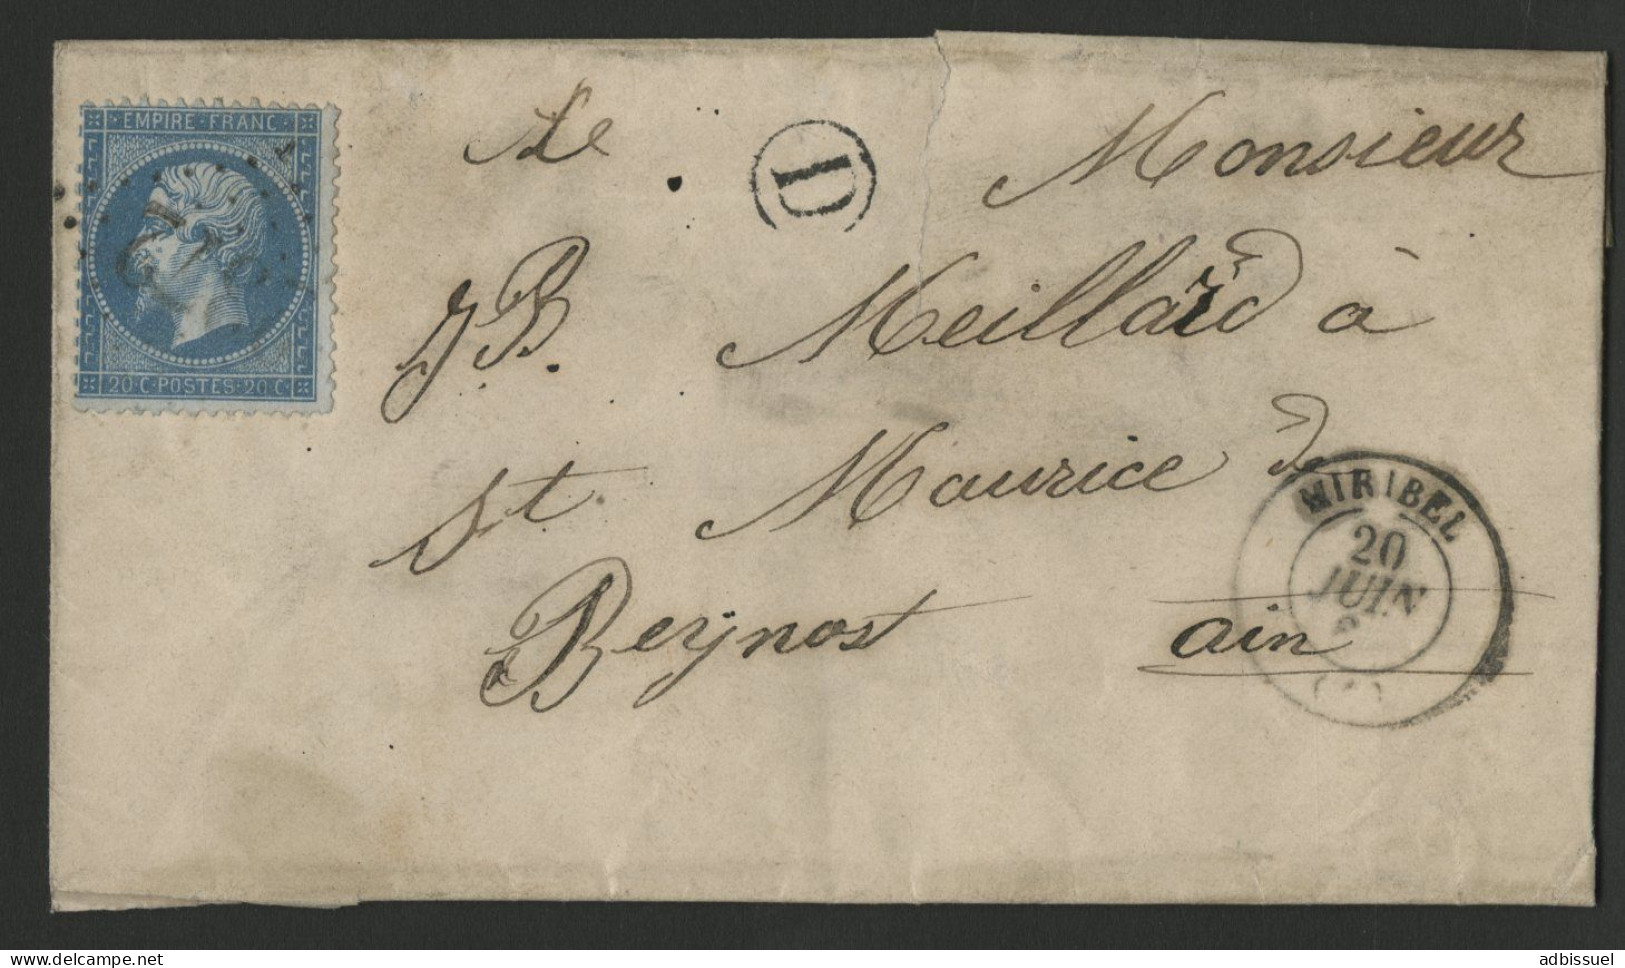 EMPIRE · FRANC ·
20 · C · POSTES · 20 · C ·
D
Monsieur
JB. Meillard à
St. Maurice de
Beynost ain
MIRIBEL
20
JUIN
delcampe.net
adbissuel